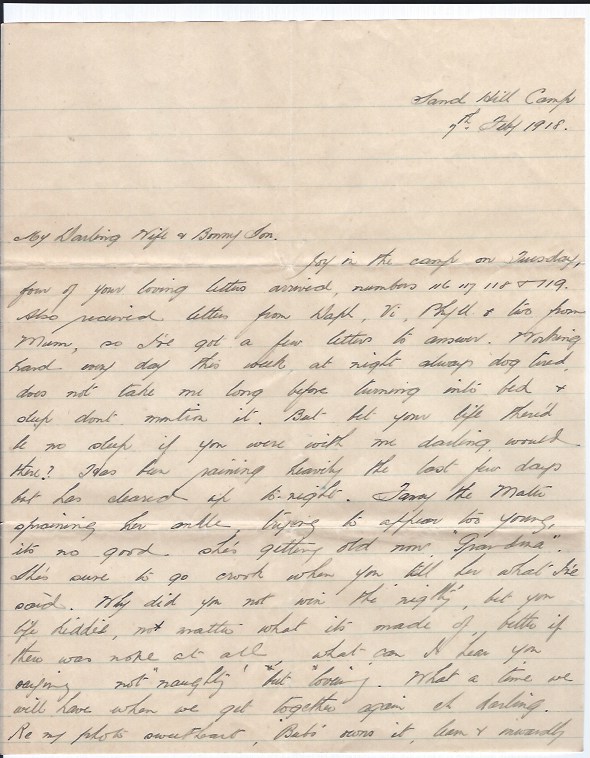 Sand Hill Camp
7th. Feby 1918.
My Darling Wife & Bonny Son.
Joy in the camp on Tuesday,
four of your loving letters arrived, numbers 116 117 118 & 119.
Also received letters from Daph, Vi, Phyll & two from
Mum, so I've got a few letters to answer. Working
hard every day this week, at night always dog tired,
does not take me long before turning into bed &
sleep dont mention it. But bet your life there'd
be no sleep if you were with me darling, would
there? Has been raining heavily the last few days
but has cleared up to-night. Fancy the Mater
spraining her ankle, trying to appear too young,
its no good. she's getting old now, "Grandma".
She's sure to go crook when you tell her what I've
said. Why did you not win the nighty, bet you
life kiddie, not matter what its made of, better if
there was none at all what can I hear you
saying not "naughty" but "loving". What a time we
will have when we get together again eh darling.
Re my photo sweetheart, Bub's owns it, learn & inwardly